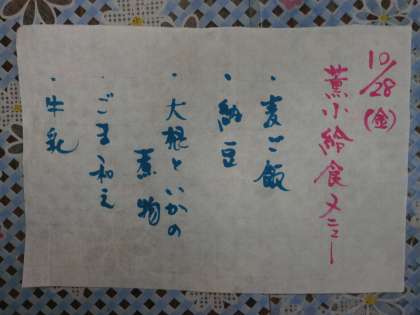 10/28(金)
薫小給食メニュー
・麦ご飯
・納豆
・大根といかの
煮物
・ごま和え
・牛乳